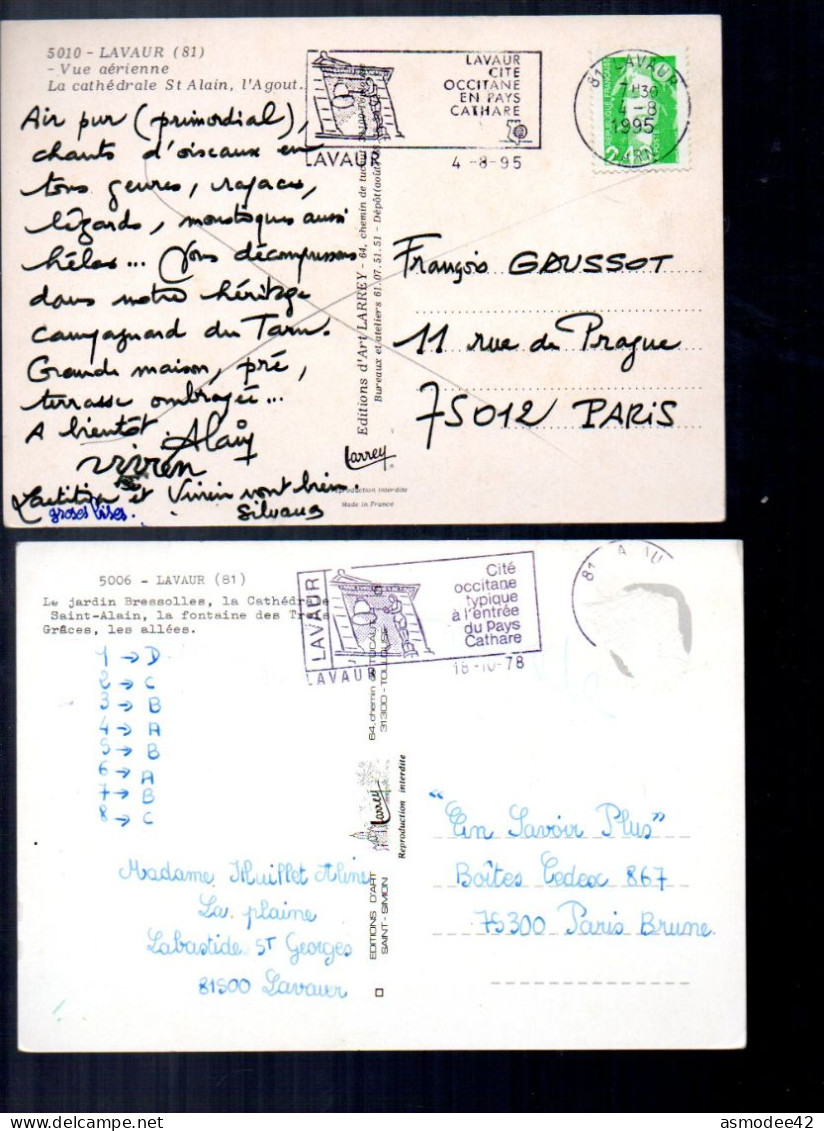 5010 - LAVAUR (81)
- Vue aérienne
La cathédrale St Alain, l'Agout.
LAVAUR
CITE
OCCITANE
EN PAYS
CATHARE
LAVAUR
4-8-95
81 LAVAUR
7H30
4-8
1995
TARN
Air pur (primordial),
chants d'oiseaux en
tous genres, rapaces,
lézards, moustiques aussi
hélas... Nous décompressons
dans notre héritage
campagnard du Tarn.
Grande maison, pré,
terrasse ombragée...
A bientôt
Alain
Vivien
Laetitia et Vivien vont bien.
Silvana
groses bises.
François GAUSSOT
11 rue de Prague
75012 PARIS
Editions d'Art LARREY - 64, chemin de
Bureaux et ateliers 61.07.51.51 - Dépôt
Larrey
Reproduction interdite
Made in France
5006 - LAVAUR (81)
Le jardin Bressolles, la Cathédrale
Saint-Alain, la fontaine des Trois
Grâces, les allées.
LAVAUR
Cité
occitane
typique
à l'entrée
du Pays
Cathare
LAVAUR
18-10-78
81
1 → D
2 → C
3 → B
4 → A
5 → B
6 → A
7 → B
8 → C
Madame Huillet Aline
La plaine
Labastide St Georges
81500 Lavaur
64, chemin de TUCAUT
31300 - TOULOUSE
Larrey
Reproduction interdite
EDITIONS D'ART
SAINT-SIMON
"En Savoir Plus"
Boîtes Cedex 867
75300 Paris Brune
asmodee42